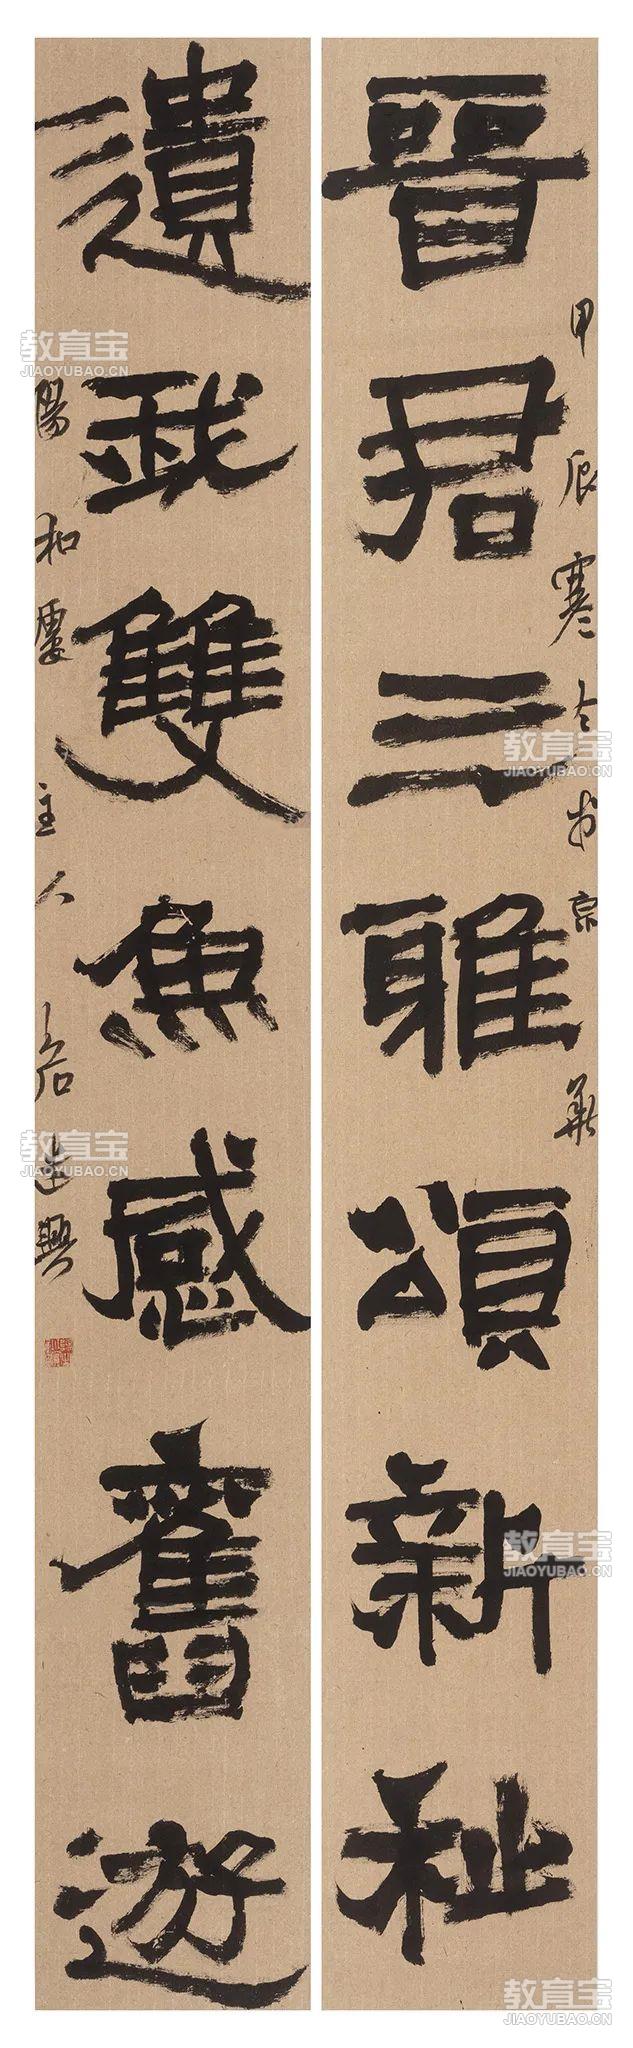 晉君三雅頌新祉
甲辰寒京華
遺我雙魚感舊遊
陽和廔主人
教育宝
JIAOYUBAO.CN
教育宝
JIAOYUBAO.CN
教育宝
JIAOYUBAO.CN
教育宝
JIAOYUBAO.CN
教育宝
JIAOYUBAO.CN